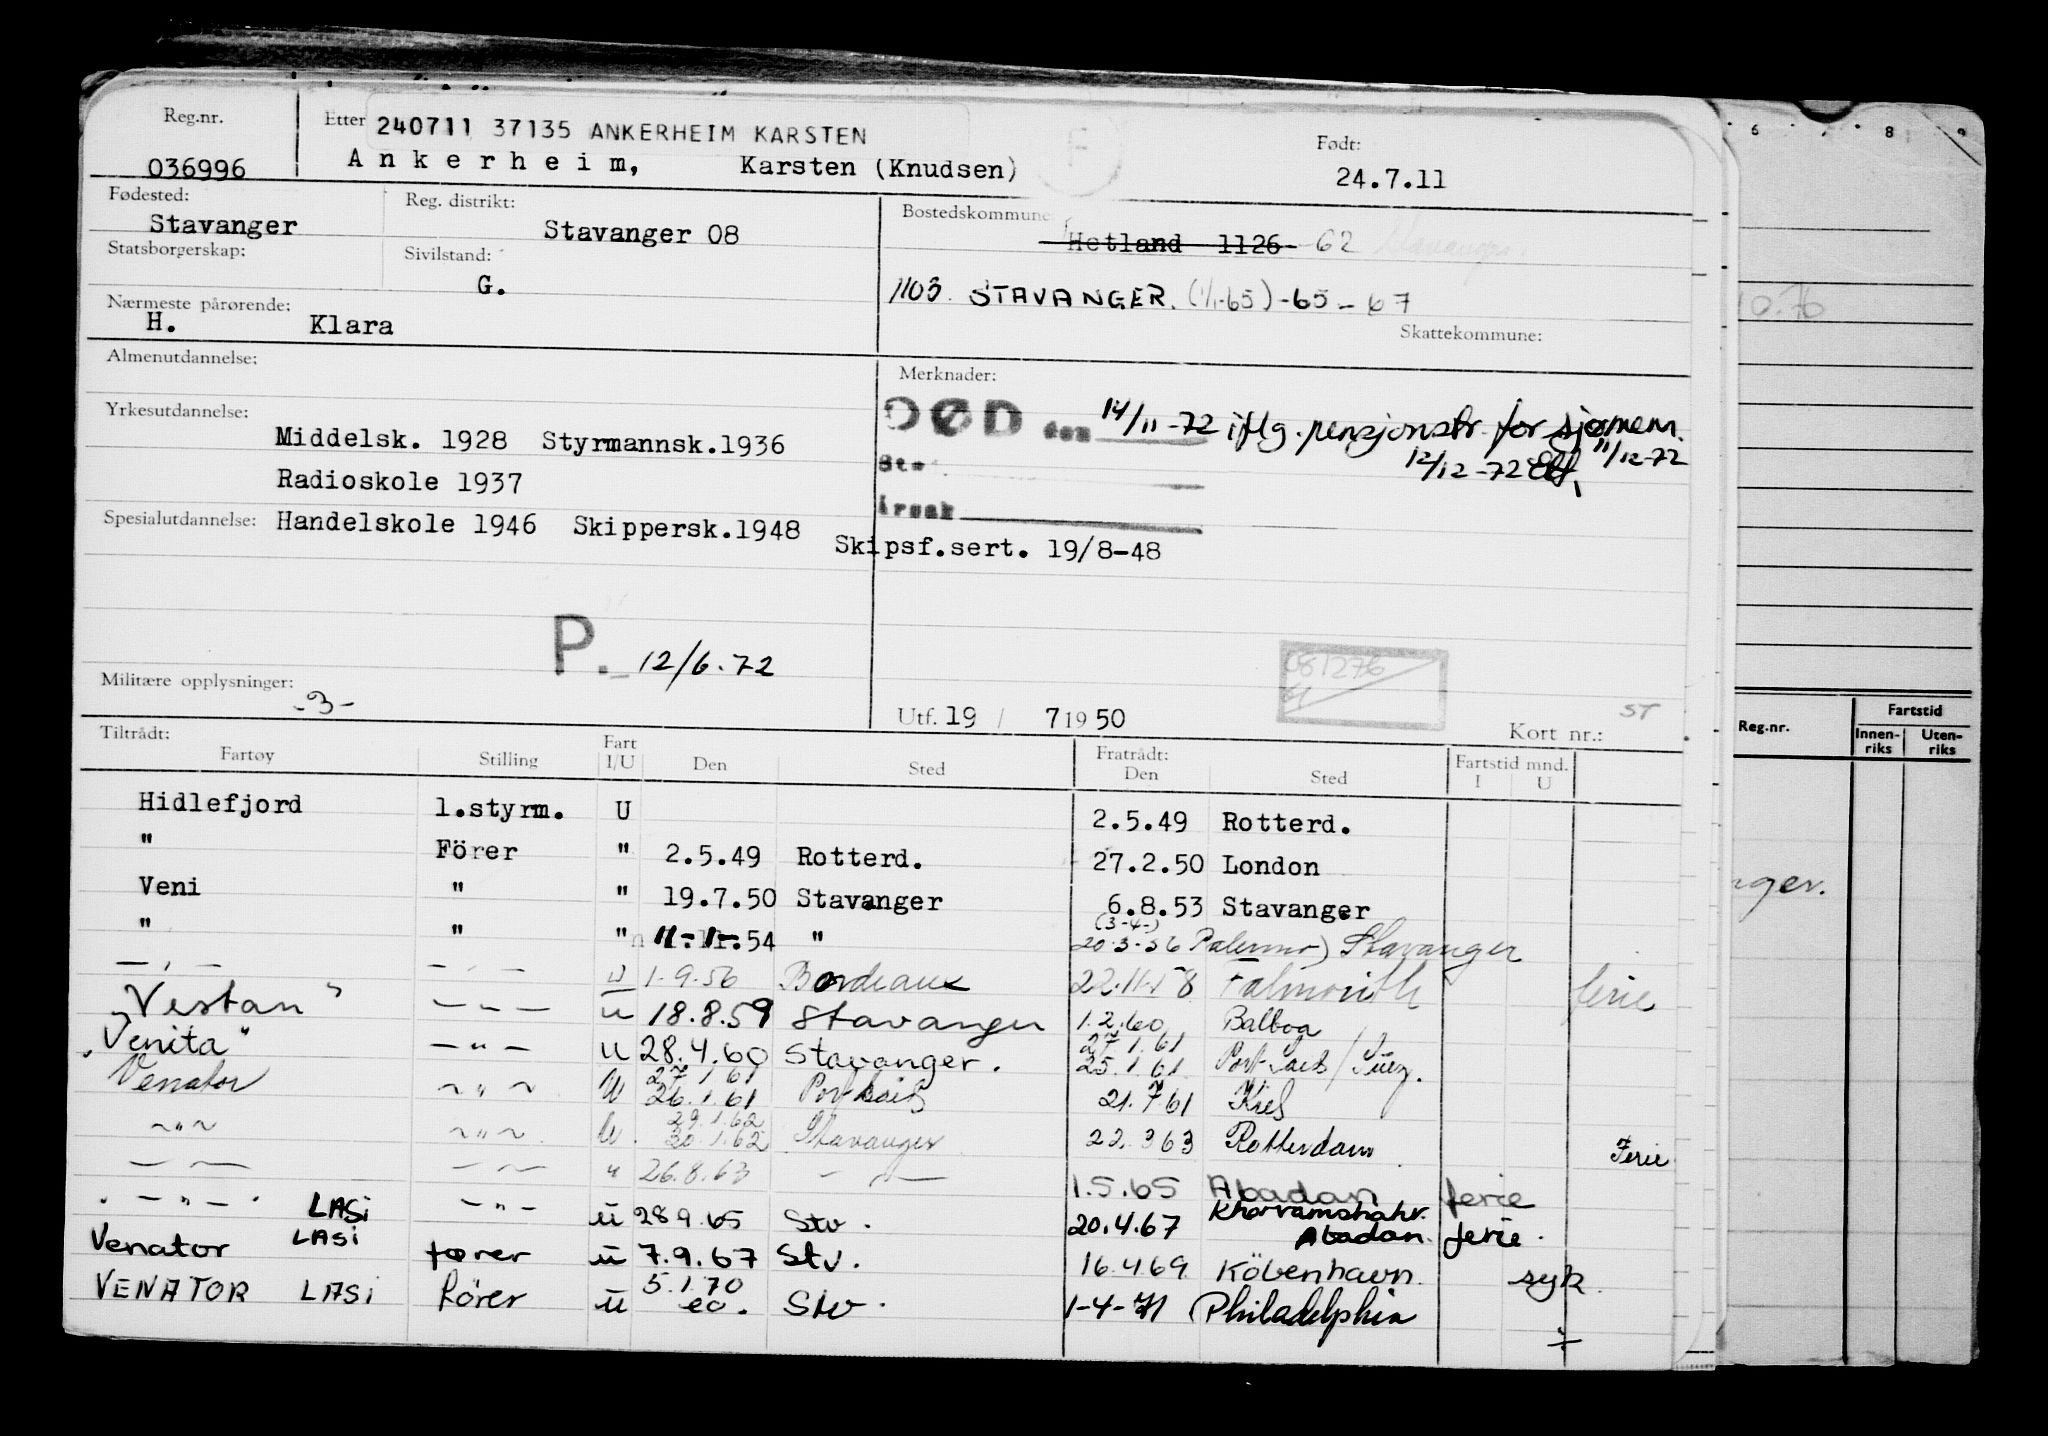 Reg.nr. Etter 240711 37135 ANKERHEIM KARSTEN Født:
036996 Ankerheim, Karsten (Knudsen) 24.7.11
Fødested: Reg. distrikt: Bostedskommune
Stavanger Stavanger 08 Hetland 1126 -62 Stavanger
Statsborgerskap: Sivilstand:
G. 1103. STAVANGER. (1/1-65) -65-67
Nærmeste pårørende:
H. Klara Skattekommune:
Almenutdannelse: Merknader:
DØD den 14/11-72 iflg. pensjonstr. for sjømenn. 11/12-72
12/12-72
Yrkesutdannelse:
Middelsk. 1928 Styrmannsk.1936
Sted
Radioskole 1937
Årsak
Spesialutdannelse: Handelskole 1946 Skippersk.1948 Skipsf.sert. 19/8-48
P. 12/6.72
081276
Militære opplysninger: -3-
Utf. 19 / 7 1950 Kort nr.: ST
Tiltrådt: Fratrådt:
Fartøy Stilling Fart I/U Den Sted Den Sted Fartstid mnd. I U
Hidlefjord 1.styrm. U 2.5.49 Rotterd.
" Förer " 2.5.49 Rotterd. 27.2.50 London
Veni " " 19.7.50 Stavanger 6.8.53 Stavanger
(3-4-)
" " " 11-1-.54 " 20.3-56 Palermo) Stavanger
— " — — " — U 1.9.56 Bordeaux 22.11.58 Falmouth ferie
"Vestan" — " — U 18.8.59 Stavanger 1.2.60 Balboa
27.1.61
"Venita" — " — U 28.4.60 Stavanger. 25.1.61 Port Said / Suez.
27.1.61
Venator ~ " ~ U 26.1.61 Port Said 21.7.61 Kiel
29.1.62
~ " ~ ~ " ~ U. 30.1.62 Stavanger 22.3.63 Rotterdam Ferie
— " — — " — " 26.8.63 — " — 1.5.65 Abadan ferie
Khorramshahr.
— " — LASI — " — U 28.9.65 Stv. 20.4.67 Abadan. ferie.
Venator LASI fører U 7.9.67 Stv. 16.4.69 Köbenhavn. syk.
5.1.70
VENATOR LASI förer U ca. Stv. 1-4-71 Philadelphia
6 8 9
10.70
Reg.nr. Fartstid
Innenriks Utenriks
nger.